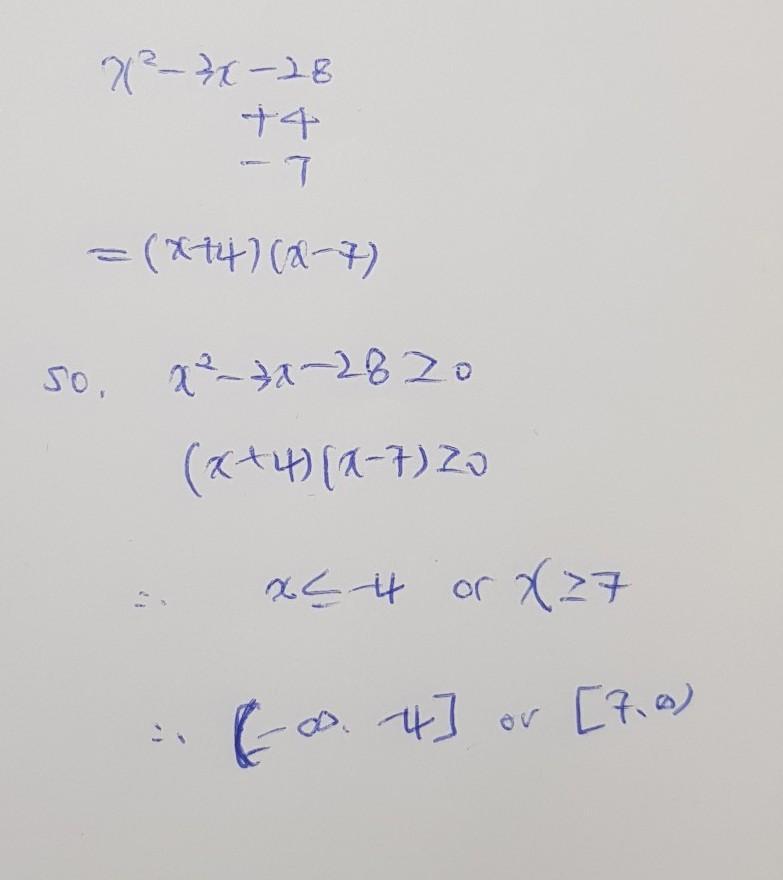 x²-3x-28
+4
-7
=(x+4)(x-7)
so, x²-3x-28≥0
(x+4)(x-7)≥0
∴ x≤-4 or x≥7
∴ (-∞, -4] or [7,∞)